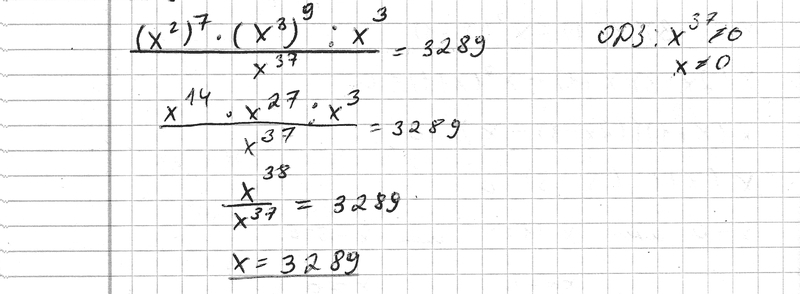 (x²)⁷ · (x³)⁹ : x³ / x³⁷ = 3289
ОДЗ: x³⁷ ≠ 0
x ≠ 0
x¹⁴ · x²⁷ : x³ / x³⁷ = 3289
x³⁸ / x³⁷ = 3289
x = 3289